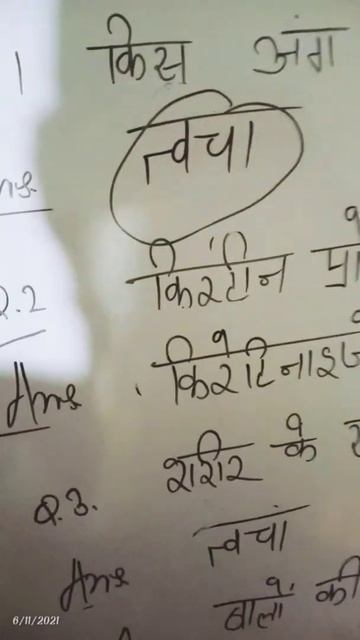 1 किस अंग
त्वचा
Ans
Q.2 किरेटीन
Ans. किरेटिनाइज
Q.3. शरीर के
Ans त्वचा
बालों की
6/11/2021